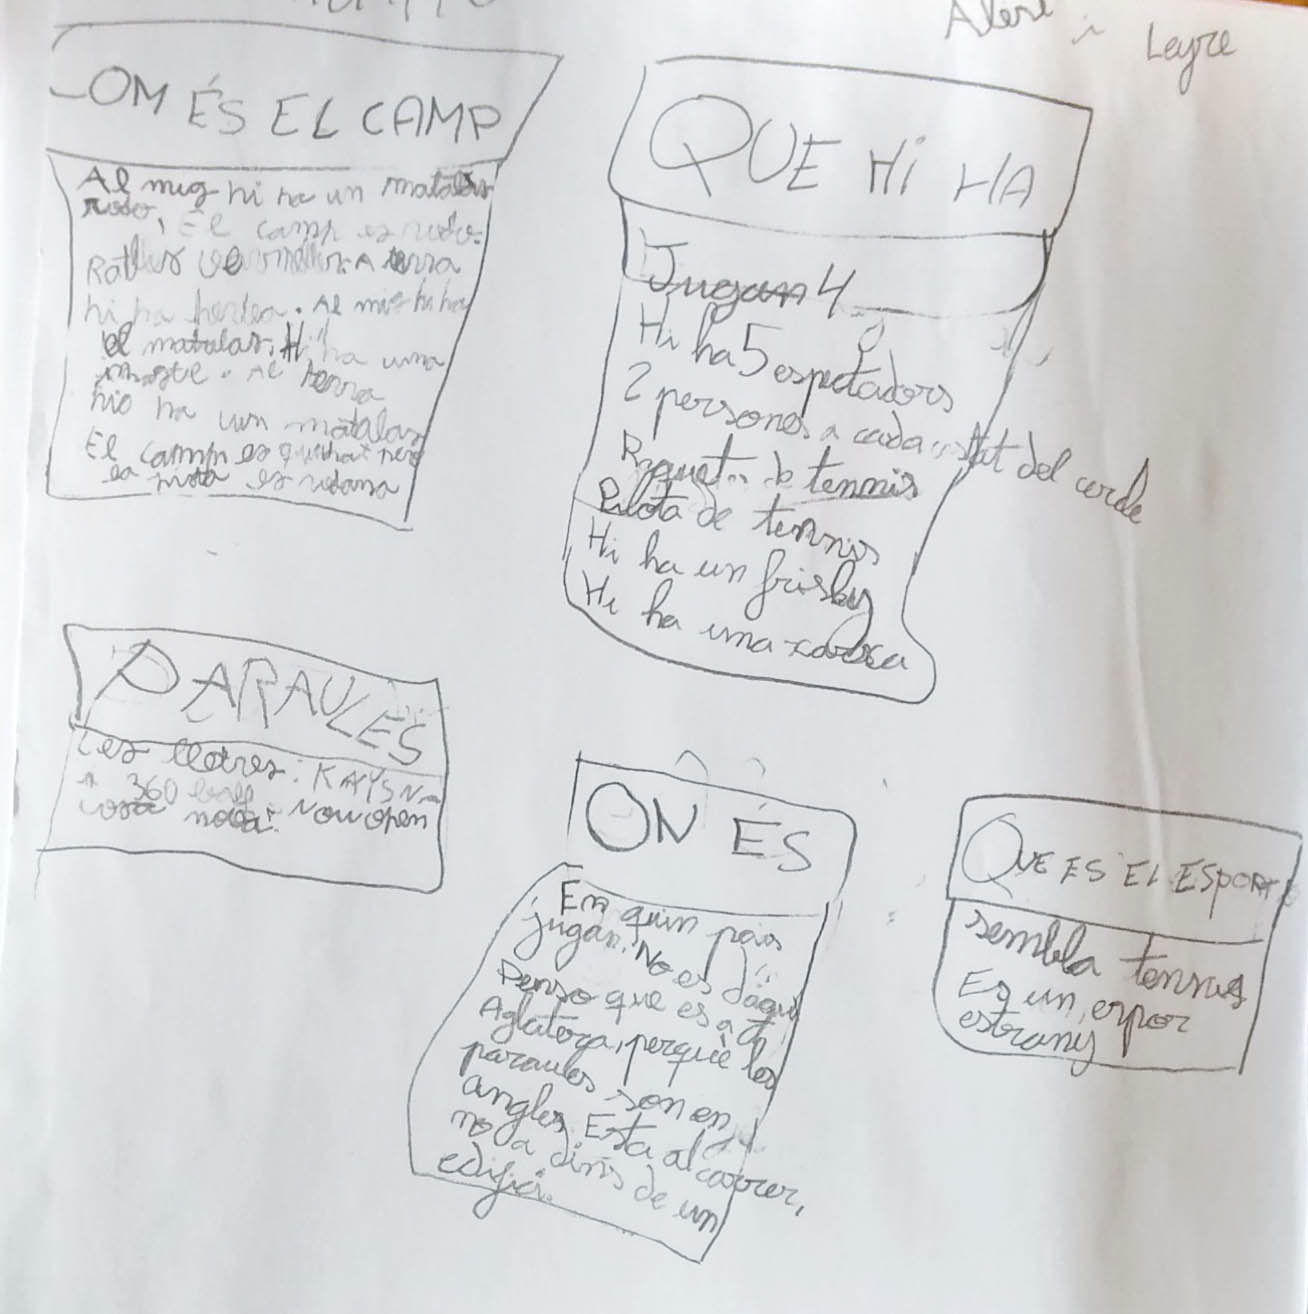 i Leyre
OM ÉS EL CAMP
Al mig hi ha un matalas
El camp es
A terra
hi ha herba. Al mig hi ha
el matalas. Hi ha una
Al terra
hio ha un matalas
El camp es
la pista es rodona
QUE Hi HA
Jugan 4
Hi ha 5 espectadors
2 persones a cada del cercle
de tennis
Pilota de tennis
Hi ha un frisby
Hi ha una
PARAULES
Les lletres: KAYSN
360 ball
nova: Now open
ON ÉS
En quin pais
jugan. No es d'aqui
Penso que es a
Aglatera, perquè les
paraules son en
angles. Esta al carrer,
no a dins de un
edifici.
QUE ES EL ESPORT
sembla tennis
Es un espor
estrany